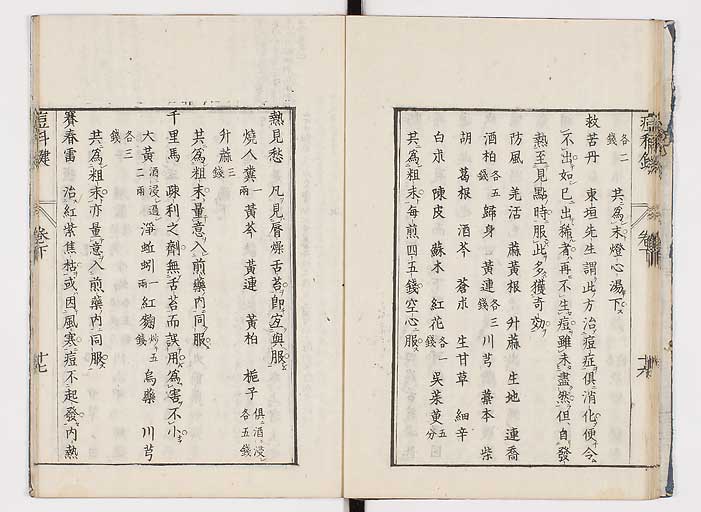 各二錢 共為末燈心湯下
救苦丹 東垣先生謂此方治痘症俱消化便令
不出如已出稀者再不生痘雖未盡然但自發
熱至見點時服此多獲奇効
防風 羌活 蔴黃根 升蔴 生地 連喬
酒柏各五錢 歸身 黃連各三錢 川芎 藁本 柴
胡 葛根 酒芩 蒼朮 生甘草 細辛
白朮 陳皮 蘇木 紅花各一錢 吳茱萸五分
共為粗末每煎四五錢空心服
痘科鍵 卷下 十六
熱見愁 凡見唇燥舌苔即宜與服
燒人糞一兩 黃芩 黃連 黃柏 梔子俱酒浸各五錢
升蔴三錢
共為粗末量意入煎藥內同服
千里馬 疎利之劑無舌苔而誤用為害不小
大黃酒浸過二兩 淨蚯蚓一兩 紅麴炒五錢 烏藥 川芎
各三錢
共為粗末亦量意入煎藥內同服
賽春雷 治紅紫焦枯或因風寒痘不起發內熱
痘科鍵 卷下 十七